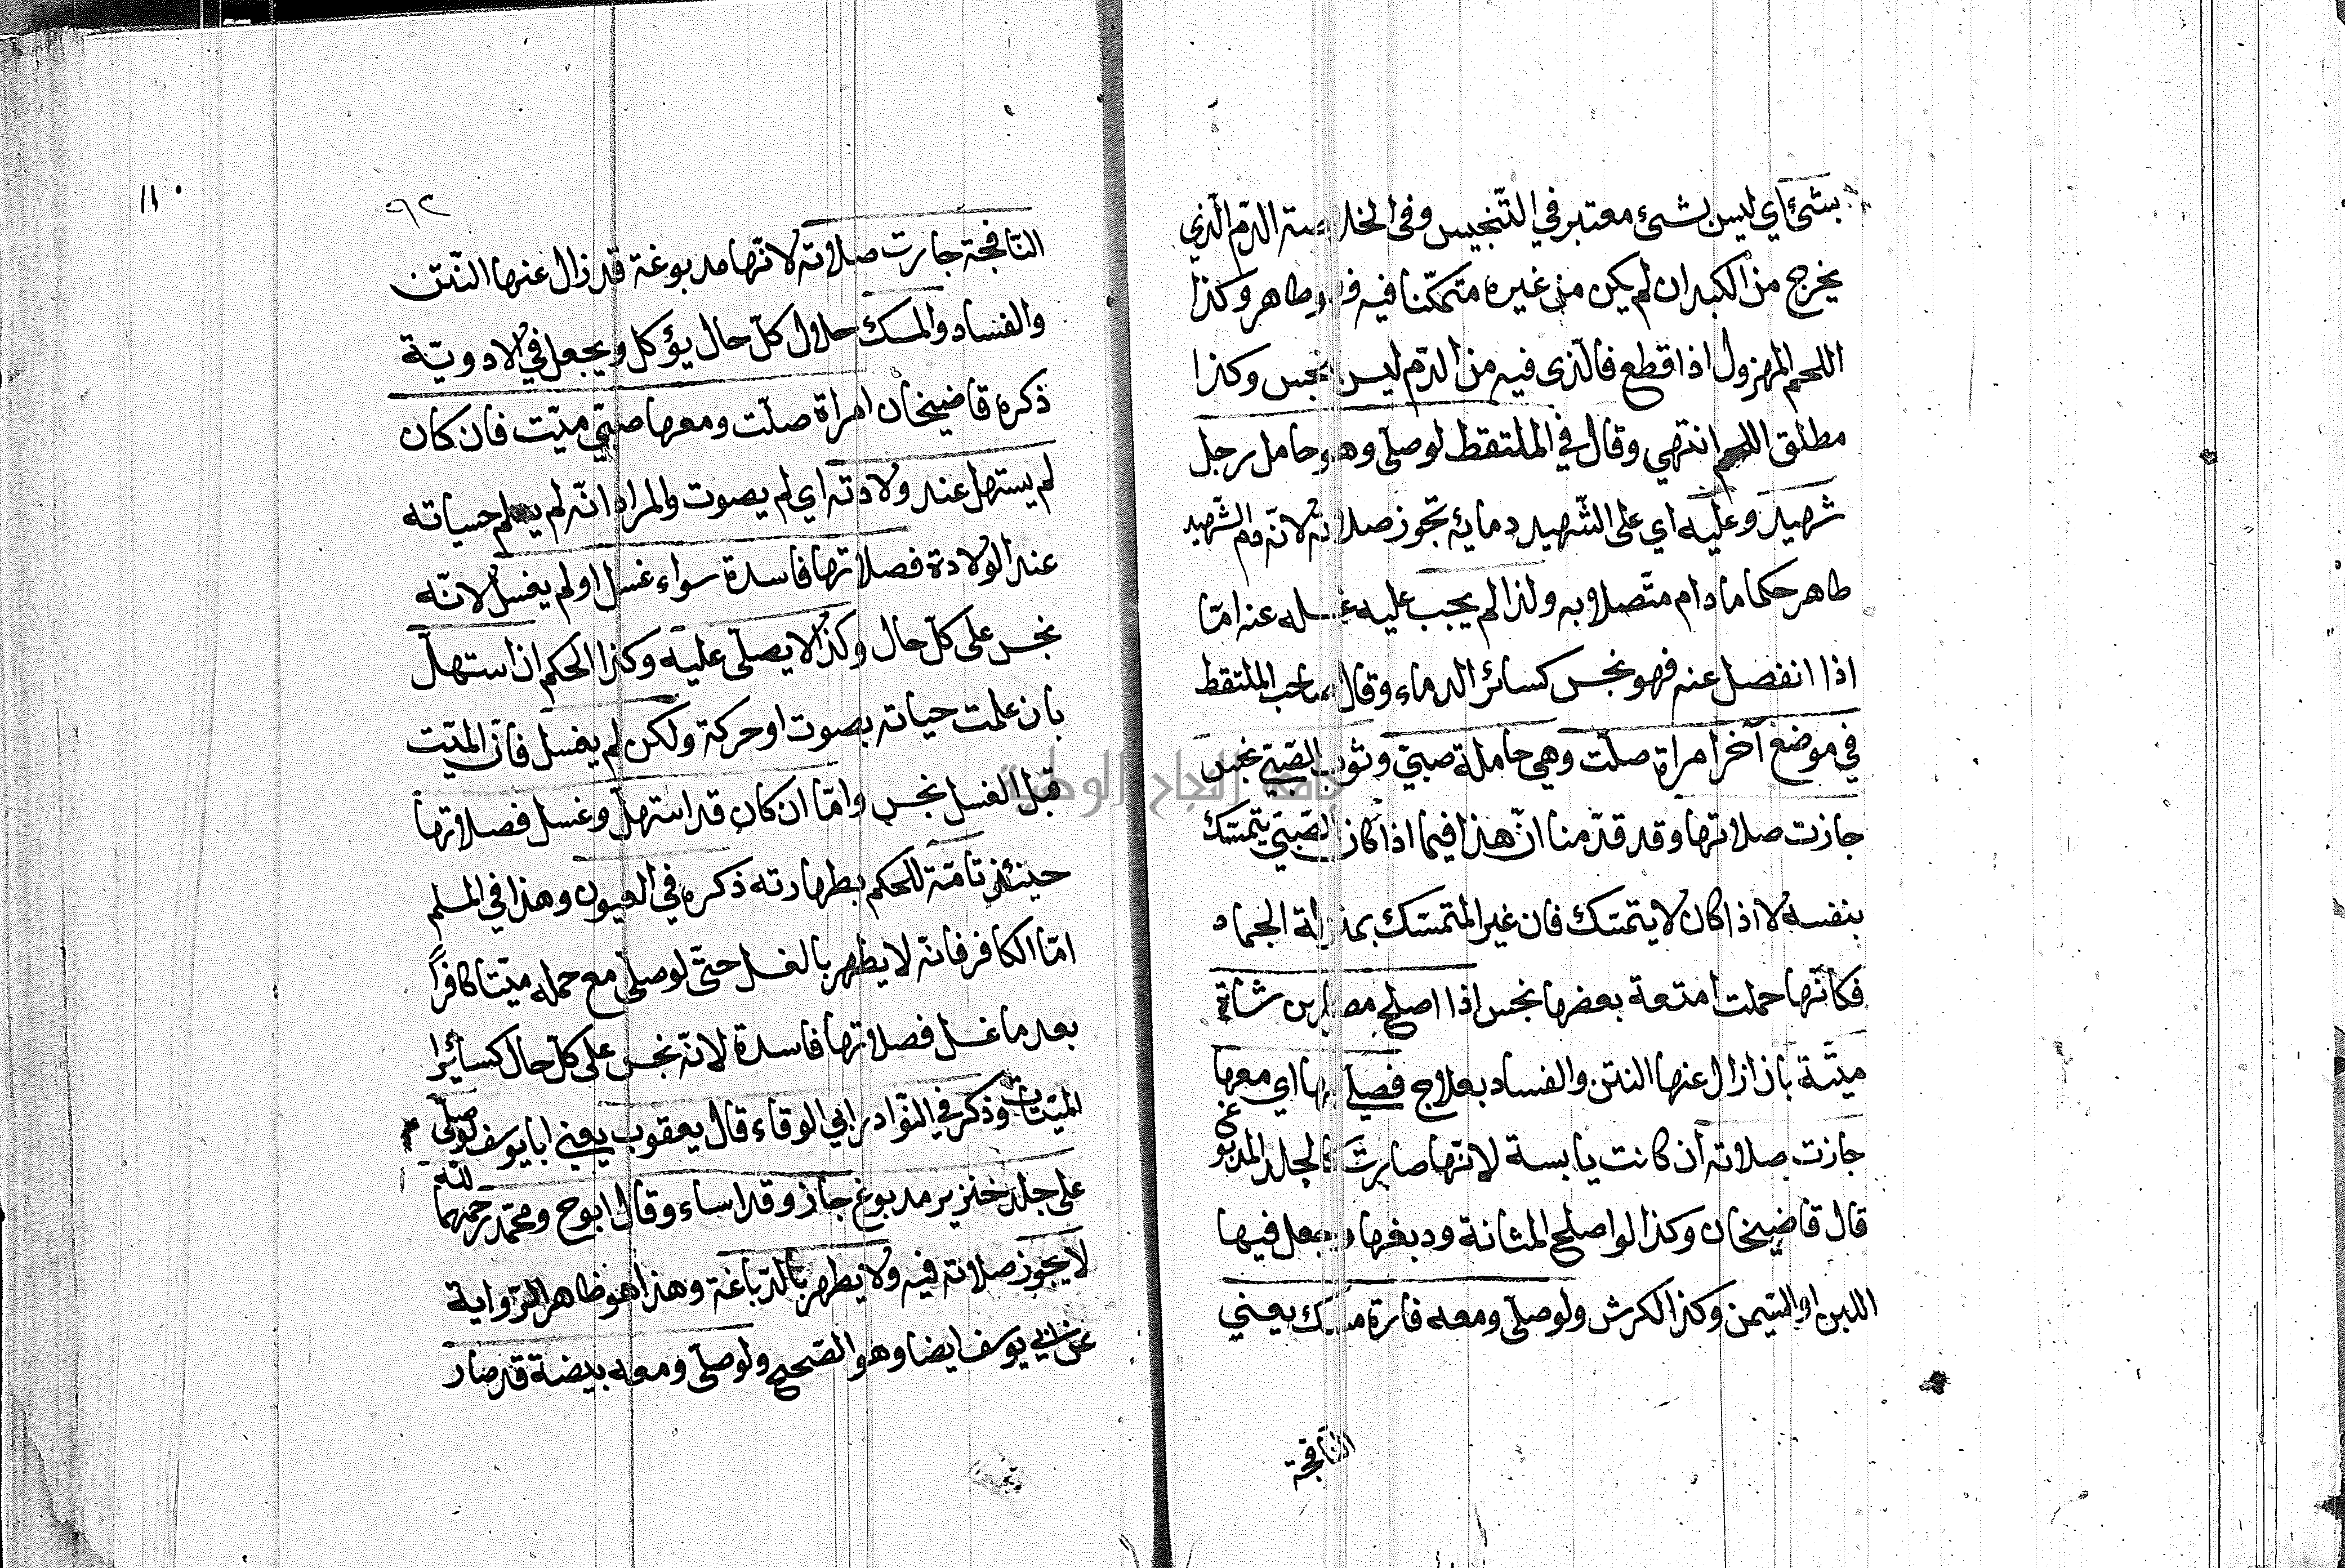 بشئ اي ليس بشئ معتبر في التنجيس وفى الخلاصة الدّم الّذي
يخرج من الكبد ان لم يكن من غيره متمكّنا فيه فهو طاهر وكذا
اللحم المهزول اذا قطع فالّذى فيه من الدّم ليس بنجس وكذا
مطلق اللحم انتهي وقال في الملتقط لو صلّى وهو حامل رجل
شهيد وعليه اي على الشّهيد دمائه تجوز صلاته لانّه دم الشهيد
طاهر حكما ما دام متّصلا به ولذا لم يجب عليه غسله عنه امّا
اذا انفصل عنه فهو نجس كسائر الدماء وقال صاحب الملتقط
في موضع آخر امراة صلّت وهي حاملة صبيّ وثوب الصّبيّ نجس
جازت صلاتها وقد قدّمنا انّ هذا فيما اذا كان الصّبيّ يتمسّك
بنفسه لا اذا كان لا يتمسّك فان غير المتمسّك بمنزلة الجماد
فكانّها حملت امتعة بعضها نجس اذا اصلح مصارين شاة
ميّتة بان ازال عنها النتن والفساد بعلاج فصلّى بها اي معها
جازت صلاته ان كانت يابسة لانّها صارت كالجلد المدبوغ
قال قاضيخان وكذا لو اصلح المثانة ودبغها وجعل فيها
اللبن او السّمن وكذا الكرش ولو صلّى ومعه فارة مسك يعني
النّافجة
٩٢
١١٠
النّافجة جازت صلاته لانّها مدبوغة قد زال عنها النّتن
والفساد والمسك حلال كلّ حال يؤكل ويجعل في الادويّة
ذكره قاضيخان امراة صلّت ومعها صبيّ ميّت فان كان
لم يستهل عند ولادته اي لم يصوت والمراد انّه لم يعلم حياته
عند الولادة فصلاتها فاسدة سواء غسل او لم يغسل لانّه
نجس على كلّ حال وكذا لا يصلّى عليه وكذا الحكم ان استهلّ
بان علمت حياته بصوت او حركة ولكن لم يغسل فانّ الميّت
قبل الغسل نجس وامّا ان كان قد استهلّ وغسل فصلاتها
حينئذ تامّة للحكم بطهارته ذكره في العيون وهذا في المسلم
امّا الكافر فانه لا يطهر بالغسل حتّى لو صلّى مع حمله ميّتا كافرًا
بعد ما غسل فصلاتها فاسدة لانّه نجس على كلّ حال كسائر ا
الميّتات وذكر في النّوادر ابي الوقاء قال يعقوب يعني ابا يوسف لو صلّى
على جلد خنزير مدبوغ جاز وقد اساء وقال ابو ح ومحمّد رحمهما الله
لا يجوز صلاته فيه ولا يطهر بالدّباغة وهذا هو ظاهر الرّواية
عن ابي يوسف ايضا وهو الصّحيح ولو صلّى ومعه بيضة قد صار
جامعة النجاح الوطنية